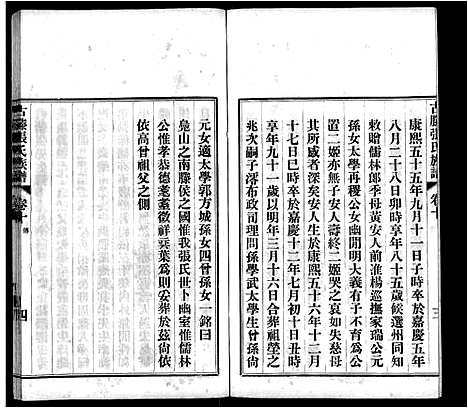 古滕張氏族譜 卷十 三
康熙五十五年九月十一日子時卒於嘉慶五年
八月二十八日卯時享年八十五歲候選州同知
敕贈儒林郎季母黃安人前淮楊巡撫家瑞公元
孫女太學再稷公女幽閒明大義有子不育為公
置二姬亦無子安人壽終二姬哭之哀如失慈母
其所感者深矣安人生於康熙五十六年十三月
十七日巳時卒於嘉慶十二年七月初十日丑時
享年九十一歲以明年三月十六日合葬祖塋之
兆次嗣子澪布政司理問孫學武太學生曾孫尚
元女適太學郭方城孫女四曾孫女一銘曰
鳧山之南滕侯之國惟我張氏世卜幽室惟儒林
公惟孝恭德耄耋徵祥奕葉為則妥葬於茲尚依
依高曾祖父之側
古滕張氏族譜 卷十 傳 四